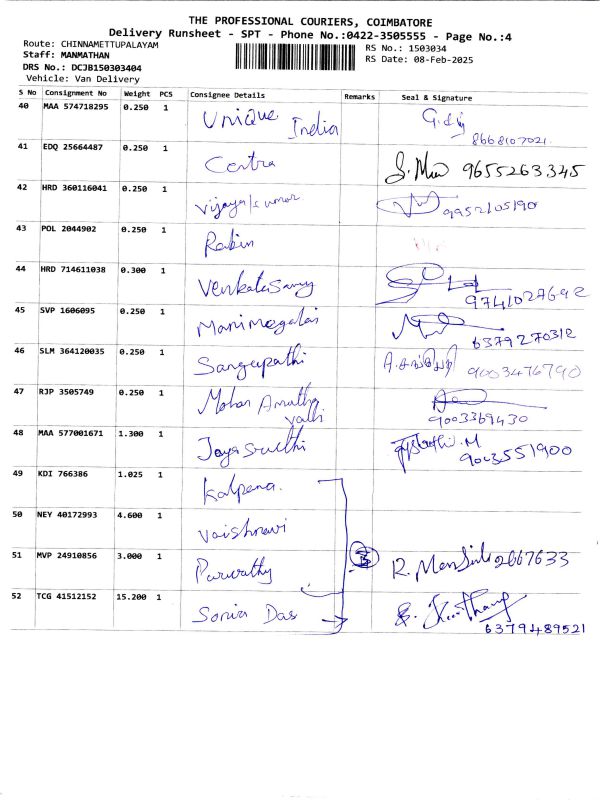 THE PROFESSIONAL COURIERS, COIMBATORE
Delivery Runsheet - SPT - Phone No.:0422-3505555 - Page No.:4
Route: CHINNAMETTUPALAYAM
RS No.: 1503034
Staff: MANMATHAN
RS Date: 08-Feb-2025
DRS No.: DCJB150303404
Vehicle: Van Delivery
S No Consignment No Weight PCS Consignee Details Remarks Seal & Signature
40 MAA 574718295 0.250 1 Unique India
8668107021
41 EDQ 25664487 0.250 1 Centra 9655263345
42 HRD 360116041 0.250 1 Vijayakumar 9952105190
43 POL 2044902 0.250 1 Rabin
44 HRD 714611038 0.300 1 Venkatasamy
9741027692
45 SVP 1606095 0.250 1 Manimegalai
6379270312
46 SLM 364120035 0.250 1 Sangapathi 9003476790
47 RJP 3505749 0.250 1 Mohan Amutha
valli 9003369430
48 MAA 577001671 1.300 1 Jayasruthi
9003551900
49 KDI 766386 1.025 1 Kalpana.
50 NEY 40172993 4.600 1 Vaishnavi
51 MVP 24910856 3.000 1 Parvathy 3 R. 2667633
52 TCG 41512152 15.200 1 Sonia Das
6379489521